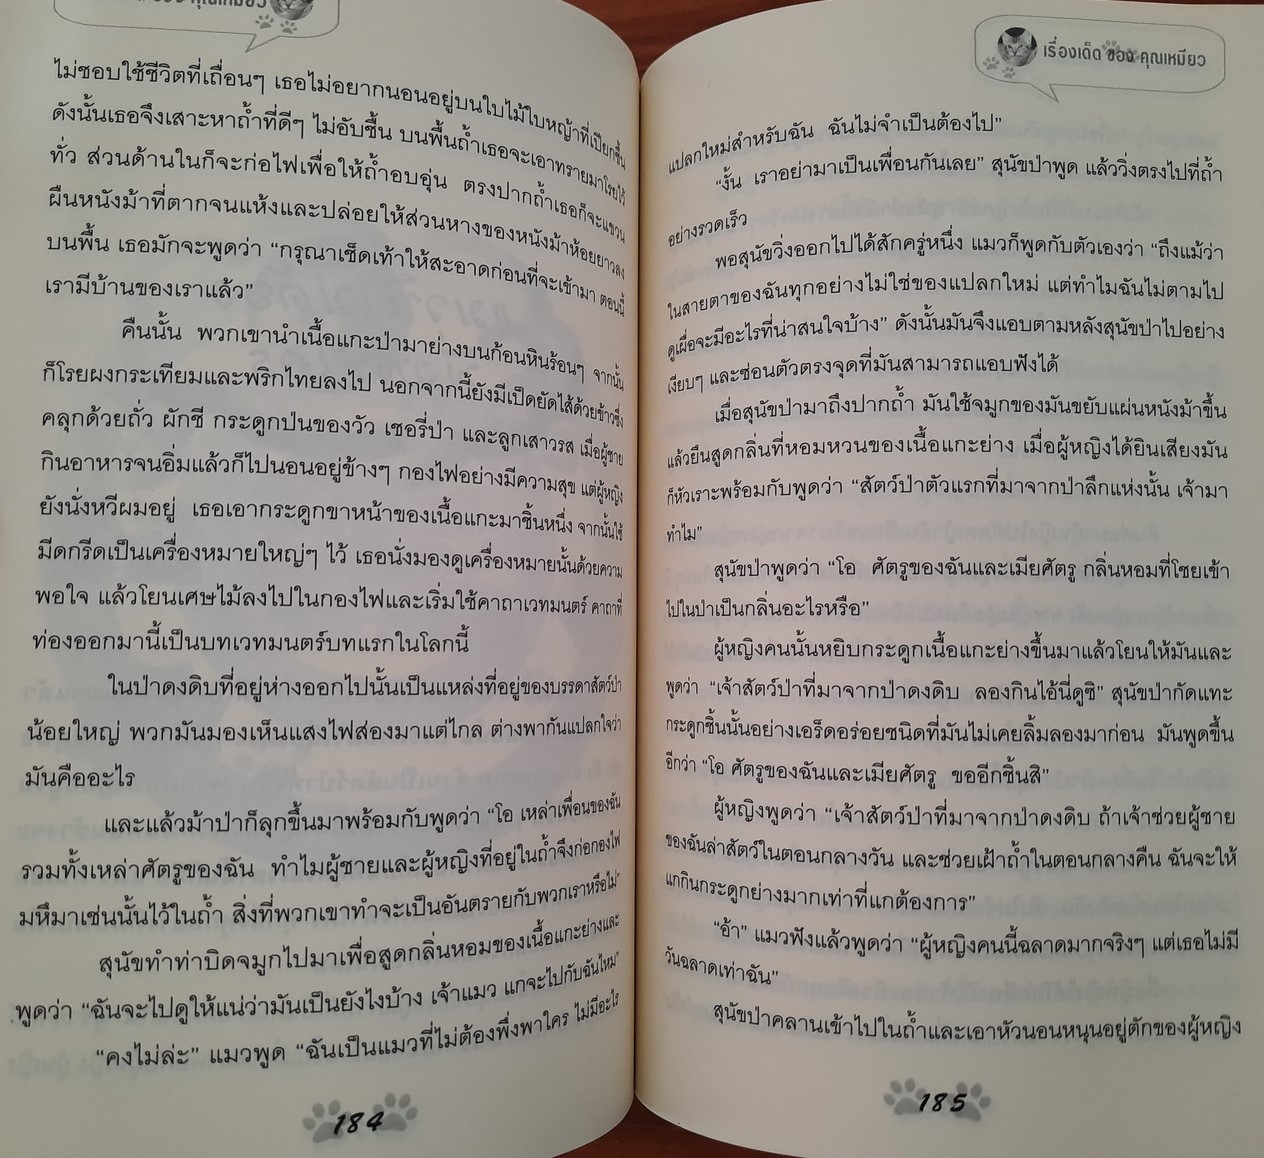 ของ คุณเหมียว
ไม่ชอบใช้ชีวิตที่เถื่อนๆ เธอไม่อยากนอนอยู่บนใบไม้ใบหญ้าที่เปียกชื้น
ดังนั้นเธอจึงเสาะหาถ้ำที่ดีๆ ไม่อับชื้น บนพื้นถ้ำเธอจะเอาทรายมาโรยไว้
ทั่ว ส่วนด้านในก็จะก่อไฟเพื่อให้ถ้ำอบอุ่น ตรงปากถ้ำเธอก็จะแขวน
ผืนหนังม้าที่ตากจนแห้งและปล่อยให้ส่วนหางของหนังม้าห้อยยาวลง
บนพื้น เธอมักจะพูดว่า “กรุณาเช็ดเท้าให้สะอาดก่อนที่จะเข้ามา ตอนนี้
เรามีบ้านของเราแล้ว”
คืนนั้น พวกเขานำเนื้อแกะป่ามาย่างบนก้อนหินร้อนๆ จากนั้น
ก็โรยผงกระเทียมและพริกไทยลงไป นอกจากนี้ยังมีเป็ดยัดไส้ด้วยข้าวซึ่ง
คลุกด้วยถั่ว ผักชี กระดูกป่นของวัว เชอรี่ป่า และลูกเสาวรส เมื่อผู้ชาย
กินอาหารจนอิ่มแล้วก็ไปนอนอยู่ข้างๆ กองไฟอย่างมีความสุข แต่ผู้หญิง
ยังนั่งหวีผมอยู่ เธอเอากระดูกขาหน้าของเนื้อแกะมาชิ้นหนึ่ง จากนั้นใช้
มีดกรีดเป็นเครื่องหมายใหญ่ๆ ไว้ เธอนั่งมองดูเครื่องหมายนั้นด้วยความ
พอใจ แล้วโยนเศษไม้ลงไปในกองไฟและเริ่มใช้คาถาเวทมนตร์ คาถาที่
ท่องออกมานี้เป็นบทเวทมนตร์บทแรกในโลกนี้
ในป่าดงดิบที่อยู่ห่างออกไปนั้นเป็นแหล่งที่อยู่ของบรรดาสัตว์ป่า
น้อยใหญ่ พวกมันมองเห็นแสงไฟส่องมาแต่ไกล ต่างพากันแปลกใจว่า
มันคืออะไร
และแล้วม้าป่าก็ลุกขึ้นมาพร้อมกับพูดว่า “โอ เหล่าเพื่อนของฉัน
รวมทั้งเหล่าศัตรูของฉัน ทำไมผู้ชายและผู้หญิงที่อยู่ในถ้ำจึงก่อกองไฟ
มหึมาเช่นนั้นไว้ในถ้ำ สิ่งที่พวกเขาทำจะเป็นอันตรายกับพวกเราหรือไม่”
สุนัขทำท่าบิดจมูกไปมาเพื่อสูดกลิ่นหอมของเนื้อแกะย่างและ
พูดว่า “ฉันจะไปดูให้แน่ว่ามันเป็นยังไงบ้าง เจ้าแมว แกจะไปกับฉันไหม”
“คงไม่ล่ะ” แมวพูด “ฉันเป็นแมวที่ไม่ต้องพึ่งพาใคร ไม่มีอะไร
184
เรื่องเด็ด ของ คุณเหมียว
แปลกใหม่สำหรับฉัน ฉันไม่จำเป็นต้องไป”
“งั้น เราอย่ามาเป็นเพื่อนกันเลย” สุนัขป่าพูด แล้ววิ่งตรงไปที่ถ้ำ
อย่างรวดเร็ว
พอสุนัขวิ่งออกไปได้สักครู่หนึ่ง แมวก็พูดกับตัวเองว่า “ถึงแม้ว่า
ในสายตาของฉันทุกอย่างไม่ใช่ของแปลกใหม่ แต่ทำไมฉันไม่ตามไป
ดูเผื่อจะมีอะไรที่น่าสนใจบ้าง” ดังนั้นมันจึงแอบตามหลังสุนัขป่าไปอย่าง
เงียบๆ และซ่อนตัวตรงจุดที่มันสามารถแอบฟังได้
เมื่อสุนัขป่ามาถึงปากถ้ำ มันใช้จมูกของมันขยับแผ่นหนังม้าขึ้น
แล้วยืนสูดกลิ่นที่หอมหวนของเนื้อแกะย่าง เมื่อผู้หญิงได้ยินเสียงมัน
ก็หัวเราะพร้อมกับพูดว่า “สัตว์ป่าตัวแรกที่มาจากป่าลึกแห่งนั้น เจ้ามา
ทำไม”
สุนัขป่าพูดว่า “โอ ศัตรูของฉันและเมียศัตรู กลิ่นหอมที่โชยเข้า
ไปในป่าเป็นกลิ่นอะไรหรือ”
ผู้หญิงคนนั้นหยิบกระดูกเนื้อแกะย่างขึ้นมาแล้วโยนให้มันและ
พูดว่า “เจ้าสัตว์ป่าที่มาจากป่าดงดิบ ลองกินไอ้นี่ดูซิ” สุนัขป่ากัดแทะ
กระดูกชิ้นนั้นอย่างเอร็ดอร่อยชนิดที่มันไม่เคยลิ้มลองมาก่อน มันพูดขึ้น
อีกว่า “โอ ศัตรูของฉันและเมียศัตรู ขออีกชิ้นสิ”
ผู้หญิงพูดว่า “เจ้าสัตว์ป่าที่มาจากป่าดงดิบ ถ้าเจ้าช่วยผู้ชาย
ของฉันล่าสัตว์ในตอนกลางวัน และช่วยเฝ้าถ้ำในตอนกลางคืน ฉันจะให้
แกกินกระดูกย่างมากเท่าที่แกต้องการ”
“อ้า” แมวฟังแล้วพูดว่า “ผู้หญิงคนนี้ฉลาดมากจริงๆ แต่เธอไม่มี
วันฉลาดเท่าฉัน”
สุนัขป่าคลานเข้าไปในถ้ำและเอาหัวนอนหนุนอยู่ตักของผู้หญิง
185